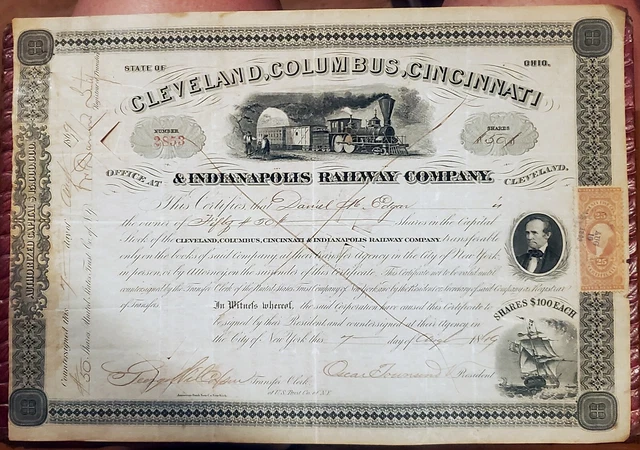 STATE OF OHIO.
CLEVELAND, COLUMBUS, CINCINNATI
NUMBER
2853
SHARES
50
OFFICE AT & INDIANAPOLIS RAILWAY COMPANY. CLEVELAND.
This Certifies, that Daniel M. Edgar is
the owner of Fifty shares in the Capital
Stock of the CLEVELAND, COLUMBUS, CINCINNATI & INDIANAPOLIS RAILWAY COMPANY. Transferable
only on the Books of said Company, at their Transfer Agency in the City of New York
in person, or by Attorney, on the surrender of this Certificate. This Certificate not to be valid until
countersigned by the Transfer Clerk of the United States Trust Company of New York
of Transfers.
In Witness whereof, the said Corporation have caused this Certificate to
be signed by their President and countersigned at their Agency in
the City of New York this 7 day of 1869
Transfer Clerk
at U.S. Trust Co. of N.Y.
Oscar Townsend President
AUTHORIZED CAPITAL
Countersigned this 7 day of 1869
50 Shares United States Trust Co. of N.Y.
SHARES $100 EACH
25